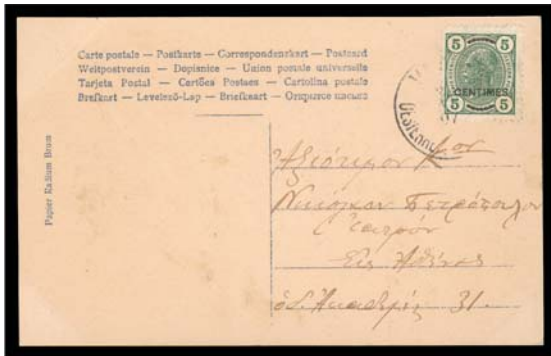 Carte postale — Postkarte — Correspondenzkart — Postcard
Weltpostverein — Dopisnice — Union postale universelle
Tarjeta Postal — Cartões Postaes — Cartolina postale
Brefkort — Levelező-Lap — Briefkaart — Открытое письмо
5 5
CENTIMES
5 5
Ἀξιότιμον
Νικόλαον Πετρόπουλον
Ἰατρόν
Εἰς Ἀθήνας
ὁδ. Ἀκαδημίας 31.
Papier Radium Brom